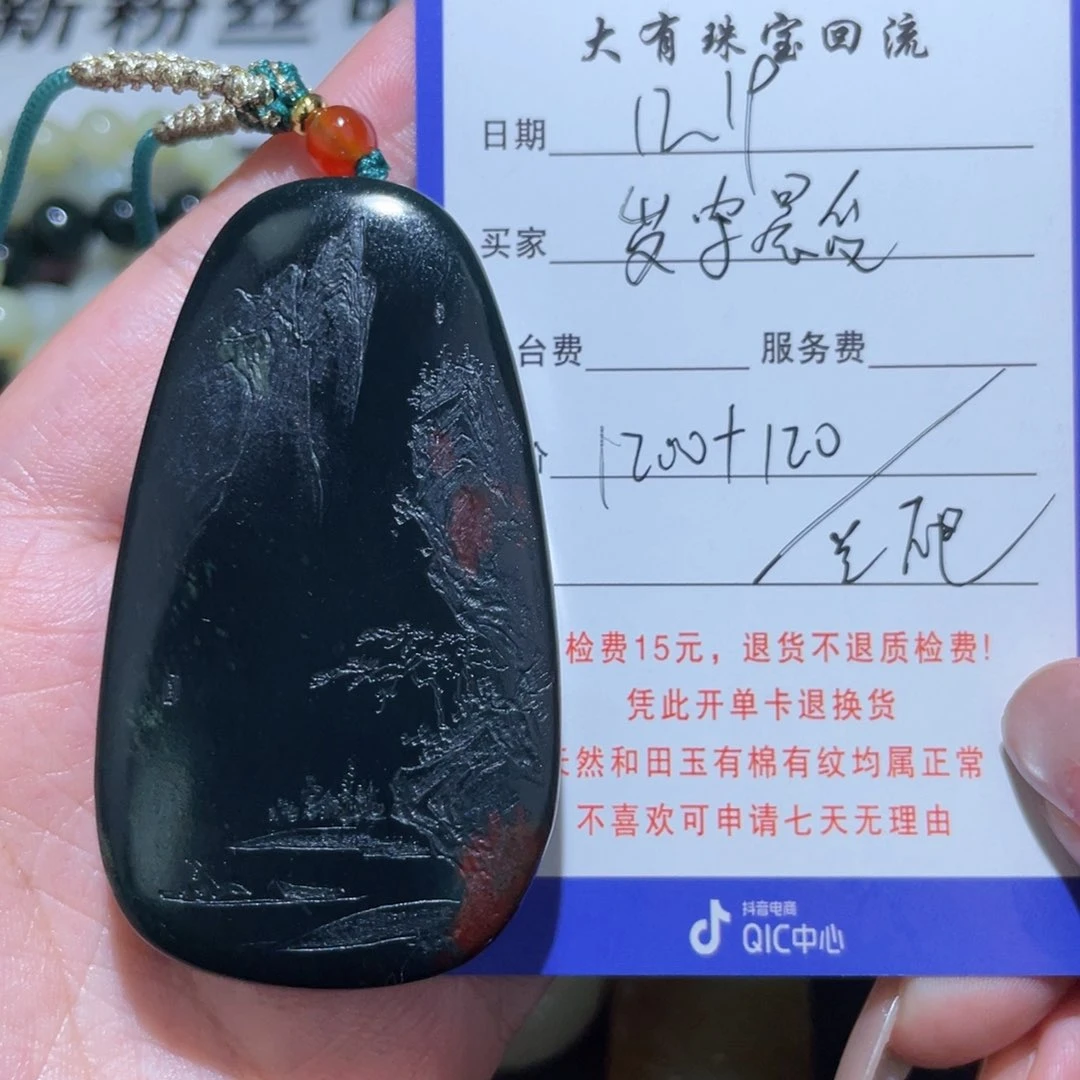 新粉丝
大有珠宝回流
日期 12 19
买家
台费 服务费
价 1200+120
检费15元，退货不退质检费！
凭此开单卡退换货
天然和田玉有棉有纹均属正常
不喜欢可申请七天无理由
抖音电商
QIC中心